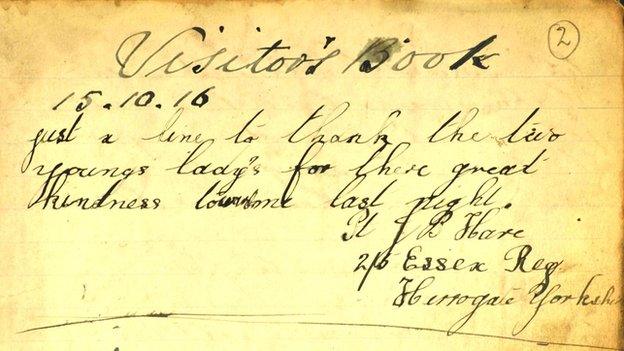 2
Visitor's Book
15.10.16
just a line to thank the two
youngs lady's for there great
kindness to me last night.
Pt J R Hare
2/5 Essex Reg
Herrogate Yorkshire